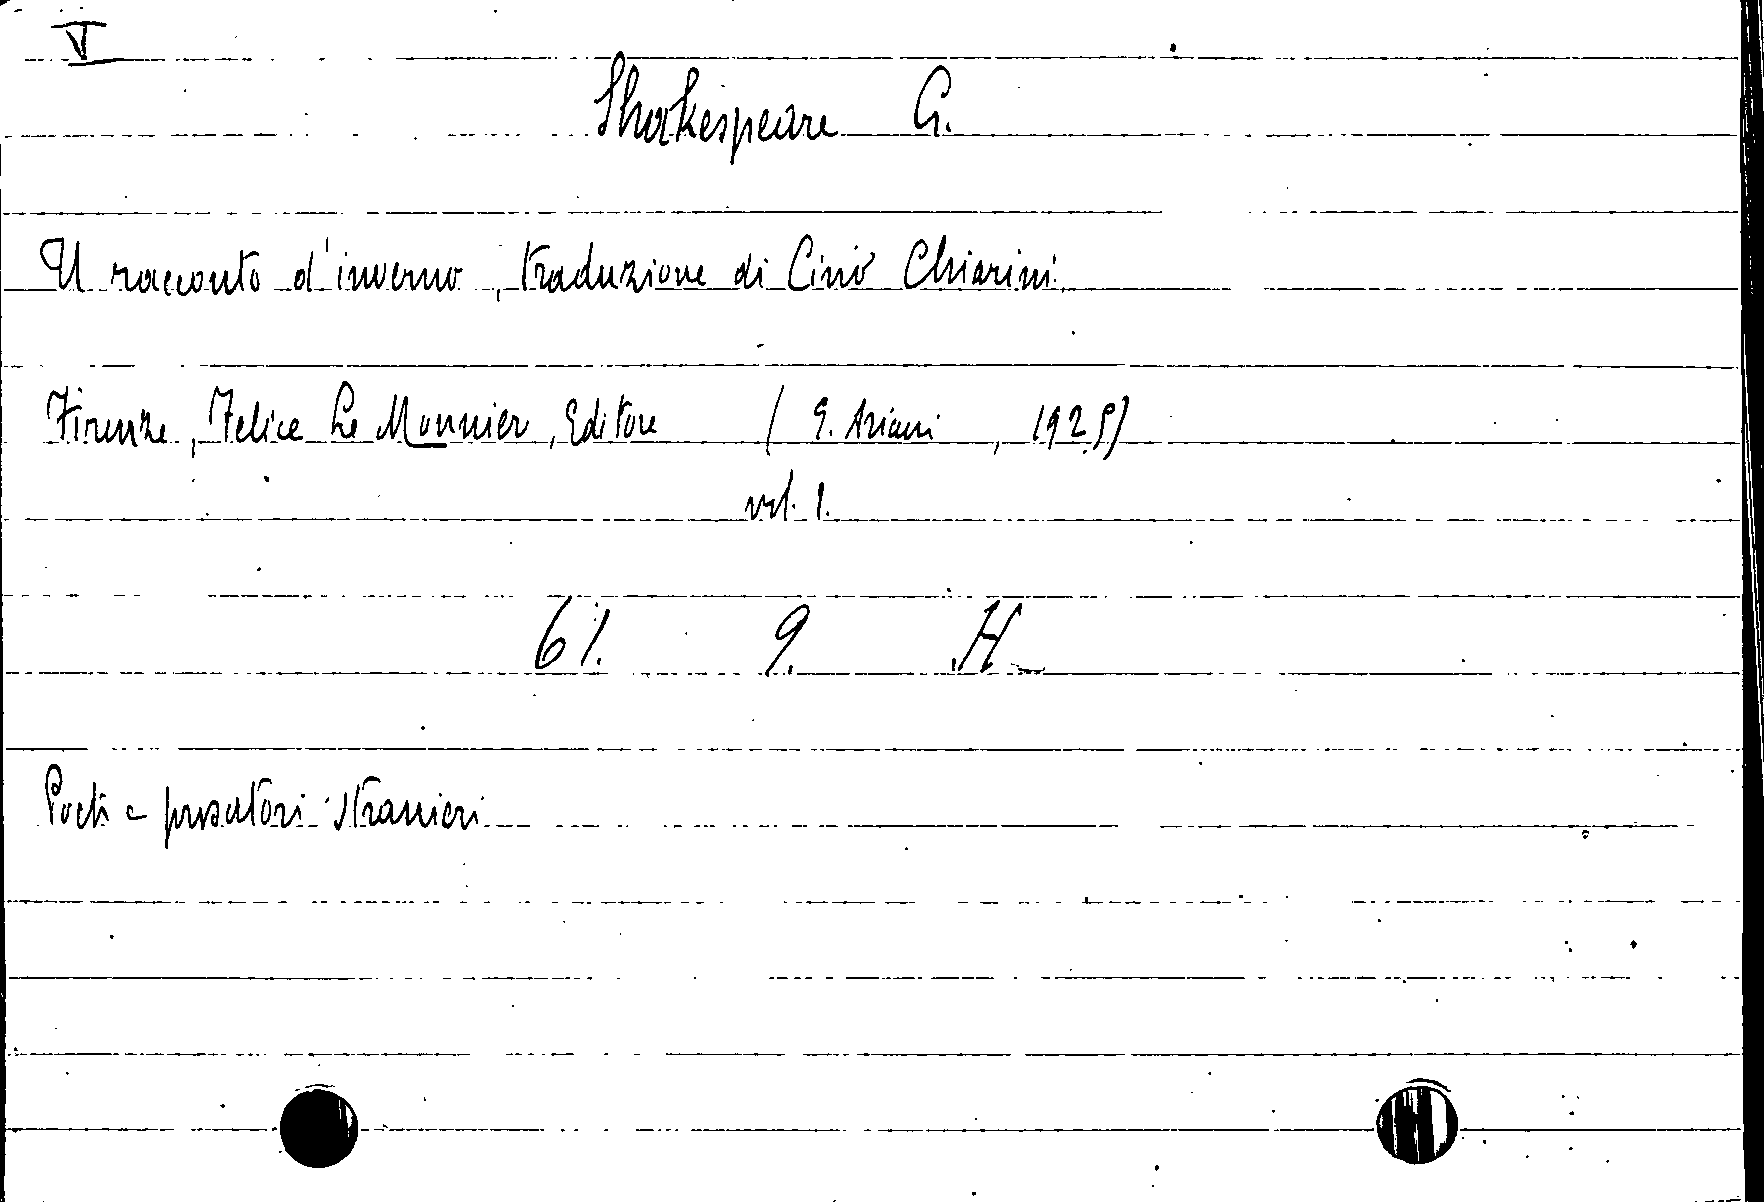 V
Shakespeare G.
Il racconto d'inverno, traduzione di Cino Chiarini.
Firenze, Felice Le Monnier, Editore (E. Ariani, 1925)
vol. 1.
61. 9. H
Poeti e prosatori stranieri